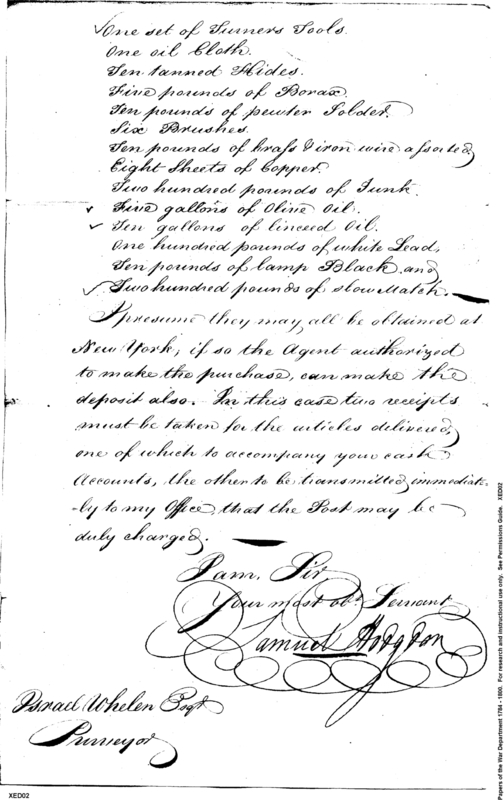 One set of Turners Tools.
One oil Cloth.
Ten tanned Hides.
Five pounds of Borax
Ten pounds of pewter Solder.
Six Brushes.
Ten pounds of brass & iron wire assorted
Eight Sheets of Copper.
Two hundred pounds of Junk
Five gallons of Olive Oil.
Ten gallons of linceed Oil.
One hundred pounds of white Lead,
Ten pounds of lamp Black and
Two hundred pounds of slow Match.
I presume they may all be obtained at
New York, if so the Agent authorized
to make the purchase, can make the
deposit also. In this case two receipts
must be taken for the articles delivered,
one of which to accompany your cash
Accounts, the other to be transmitted immediate
-ly to my Office, that the Post may be
duly charged.
I am, Sir
Your most obt. Servant
Samuel Hodgdon
Israel Whelen Esqr.
Purveyor
XED02
Papers of the War Department 1784 - 1800. For research and instructional use only. See Permissions Guide. XED02